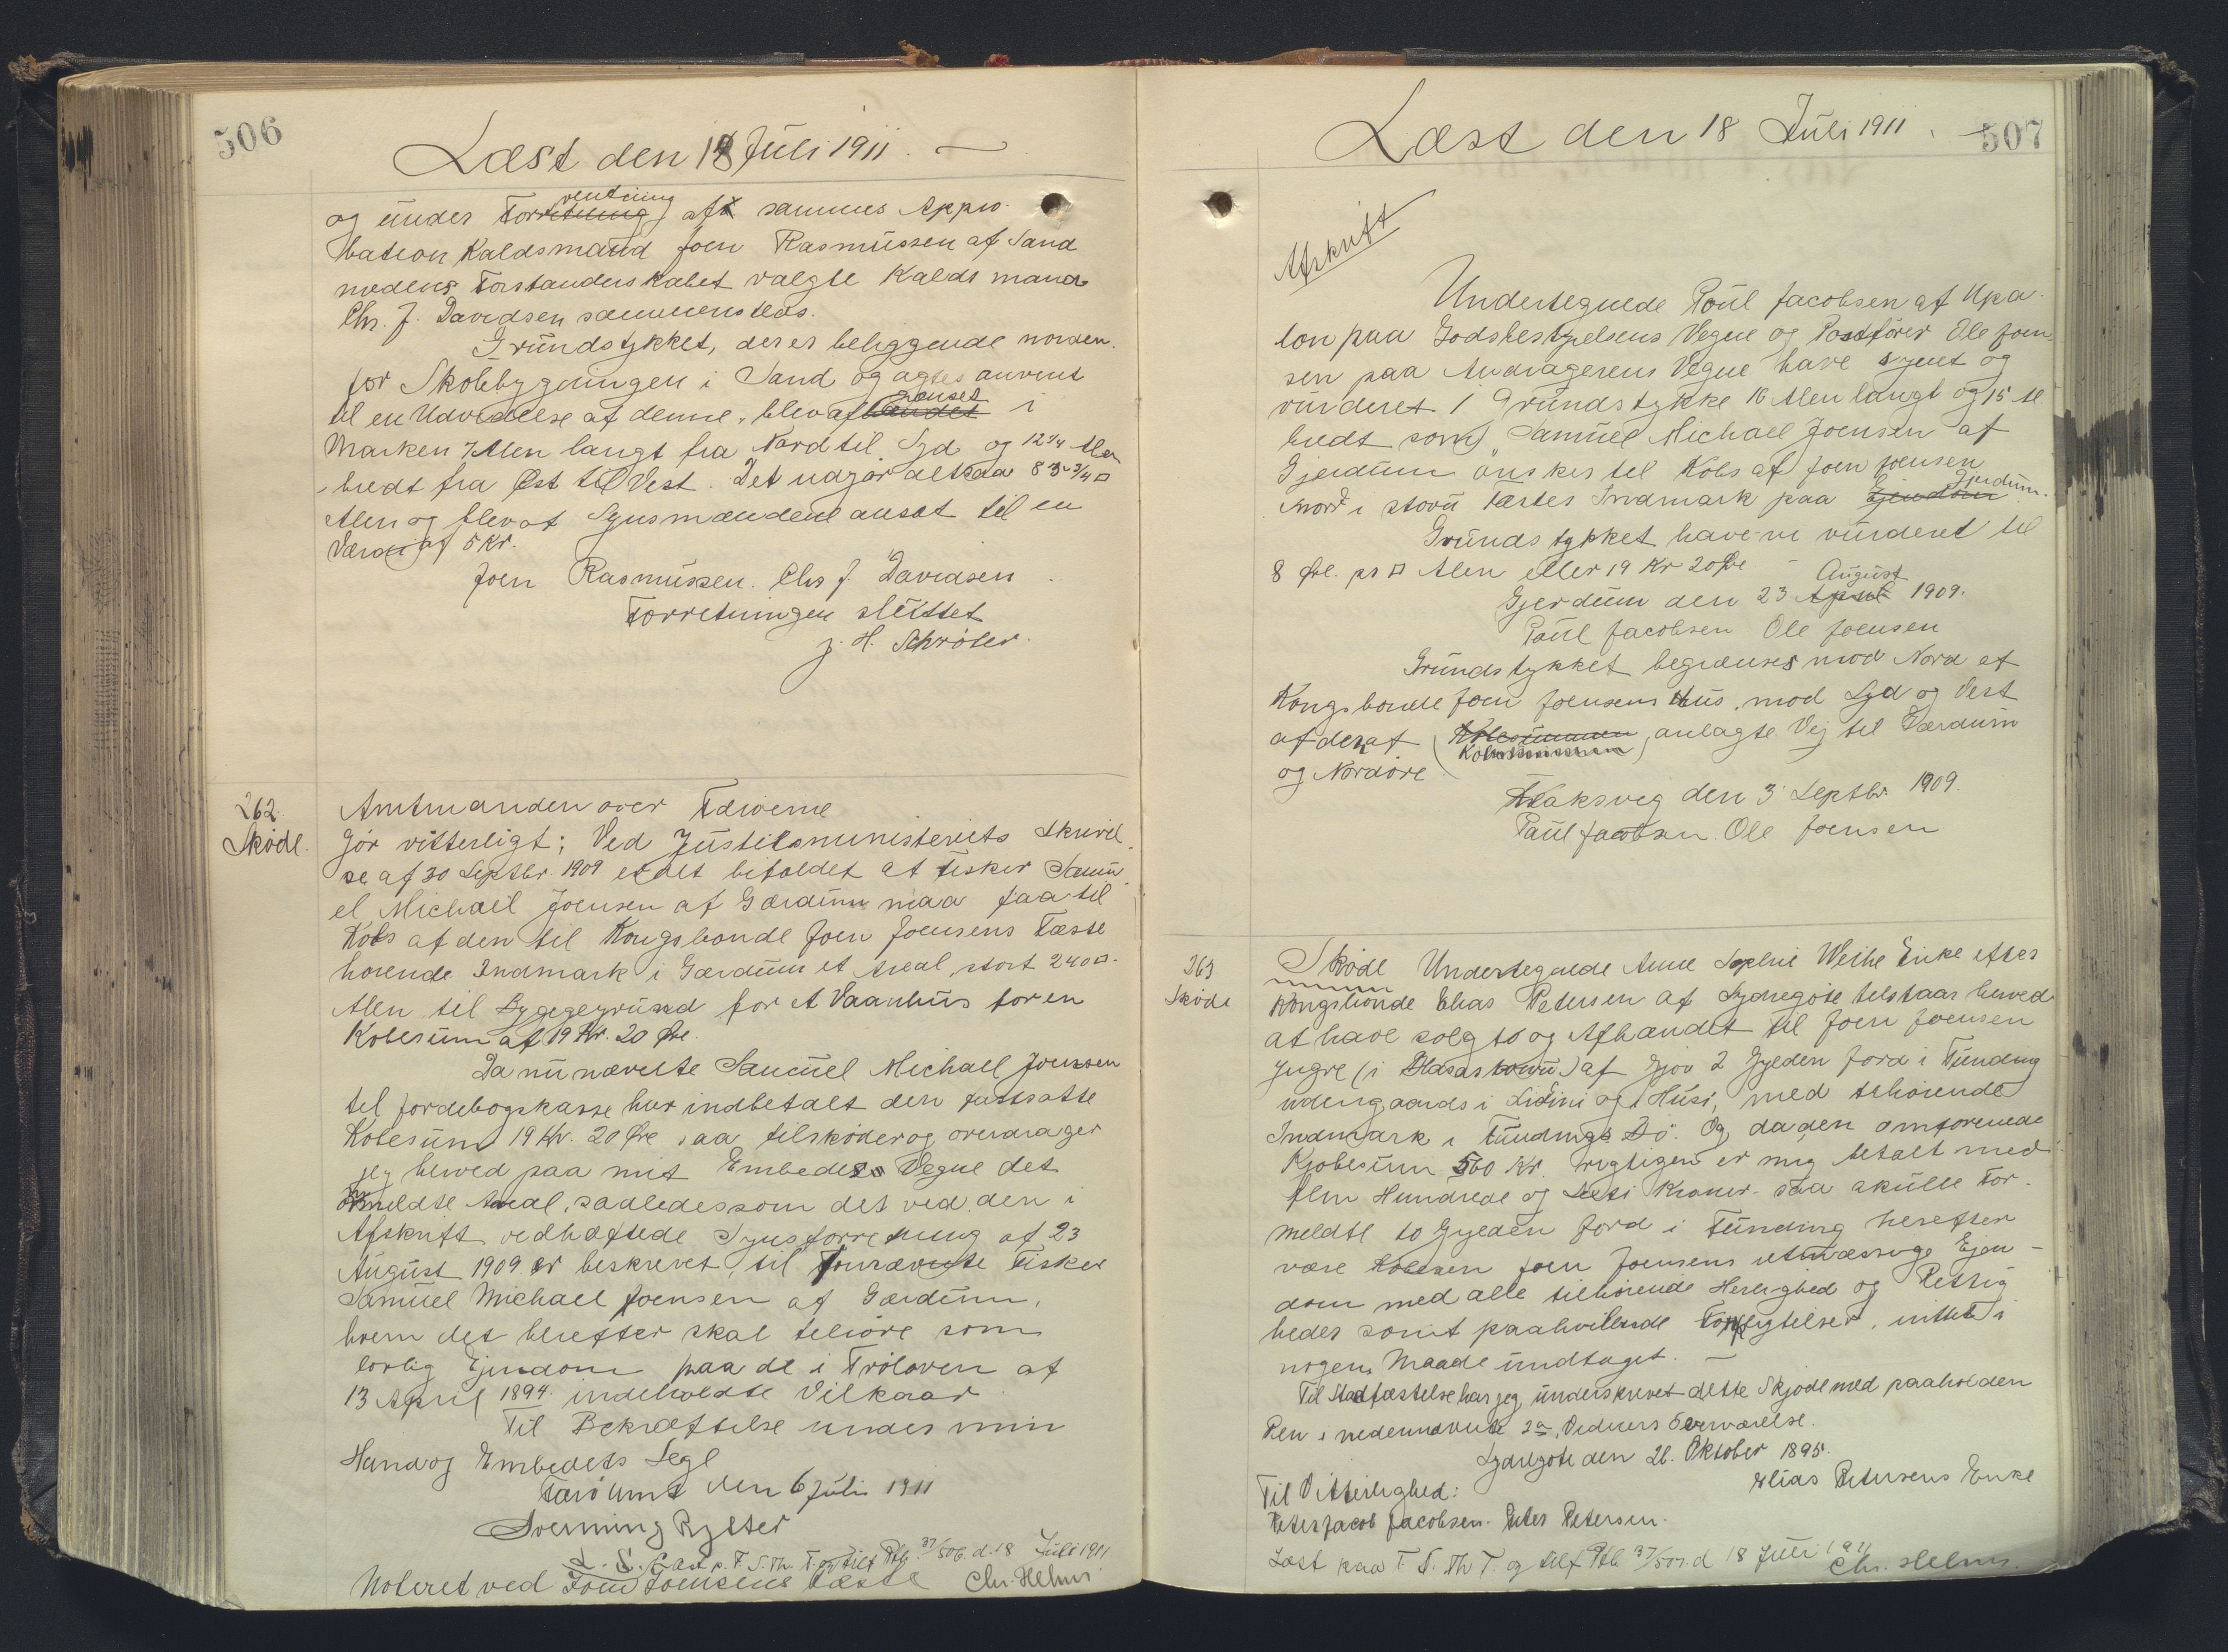 506
Læst den 18 Juli 1911.
og under Forretning ventning af sammes Appro-
bation Kaldsmand Joen Rasmussen af Sand
medens Forstanderskabet valgte Kaldsmand
Chr. J. Davidsen sammensteds.
Grundstykket, der er beliggende norden-
for Skolebygningen i Sand og agtes anvent
til en Udvidelse af denne, blev afgrænset i
Marken 7 Alen langt fra Nord til Syd og 12 1/4 Alen
bredt fra Øst til Vest. Det udgør altsaa 85 3/4 □
Alen og blev af Synsmændene ansat til en
Værdi af 5 Kr.
Joen Rasmussen. Chr J. Davidsen
Forretningen sluttet
J. H. Schrøter.
262.
Skøde.
Amtmanden over Færøerne
Gjør vitterligt: Ved Justitsministeriets Skrivel-
se af 30 Septbr. 1909 er det bifaldet at Fisker Samu-
el Michael Joensen af Gærdum maa faa til
Købs af den til Kongsbonde Joen Joensens Fæste
hørende Indmark i Gærdum et Areal, stort 240 □-
Alen til Byggegrund for et Vaanhus for en
Købesum af 19 Kr. 20 Øre.
Da nu nævnte Samuel Michael Joensen
til Jordebogskassen har indbetalt den fastsatte
Købesum 19 Kr. 20 Øre, saa tilskøder og overdrager
jeg herved paa mit Embedes Vegne det
ommeldte Areal, saaledes som det ved den i
Afskrift vedhæftede Synsforretning af 23
August 1909 er beskrevet, til fornævnte Fisker
Samuel Michael Joensen af Gærdum,
hvem det herefter skal tilhøre som
lovlig Ejendom paa de i Frøloven af
13 April 1894 indeholdte Vilkaar
Til Bekræftelse under min
Haand og Embedets Segl
Færø Amt den 6 Juli 1911
Svenning Rytter
L. S. Læst p. F. S. Th. T. og tilf Ptb. 37/506. d. 18 Juli 1911
Noteret ved Joen Joensens Fæste Chr. Helms.
Læst den 18 Juli 1911.
507
Afskrift
Undertegnede Poul Jacobsen afUpa-
lon paa Godsbestyrelsens Vegne og Postfører Ole Joen-
sen paa Andragerens Vegne have synet og
vurderet 1 Grundstykke 16 Alen langt og 15 Al
bredt som Samuel Michael Joensen af
Gjerdum ønskes til Købs af Joen Joensen
nord i stovu Fæstes Indmark paa Ejendom Gjerdum.
Grundstykket have vi vurderet til
8 Øre. pr □ Alen eller 19 Kr 20 Øre
Gjerdum den 23 April August 1909.
Poul Jacobsen Ole Joensen
Grundstykket begrænses mod Nord af
Kongsbonde Joen Joensens Hus, mod Syd og Vest
af den af Kommissionen anlagte Vej til Gærdum
og Nordøre
Klaksvig den 3 Septbr. 1909.
Poul Jacobsen. Ole Joensen
263
Skøde
Skøde Undertegnede Anne Sophie Weihe Enke efter
Kongsbonde Elias Petersen af Sydregøte tilstaar herved
at have solgt og Afhændet til Joen Joensen
yngre (i ) af Gjov 2 Gylden Jord i Funding
udengaards i Lidini og i Húsi, med tilhørende
Indmark i Fundings Bø. Og da den omforenede
Kjøbesum 560 Kr. rigtigen er mig betalt med
fem Hundrede og Kroner. saa skulle For-
meldte to Gylden Jord i Funding herefter
være Køberen Joen Joensens retmæssige Ejen-
dom med alle tilhørende Herlighed og Rettig
heder samt paahvilende Forpligtelser, intet i
nogen Maade undtaget. —
Til Stadfæstelse har jeg underskrevet dette Skjøde med paaholden
Pen i nedennævnte 2de Vidners Overværelse.
Sydregøte den 26. Oktober 1895.
Elias Petersens Enke
Til Vitterlighed:
Peter Jacob Jacobsen. Peter Petersen.
Læst paa F. S. Th T. og tilf Ptb 37/507. d 18 Juli 1911
Chr. Helms.